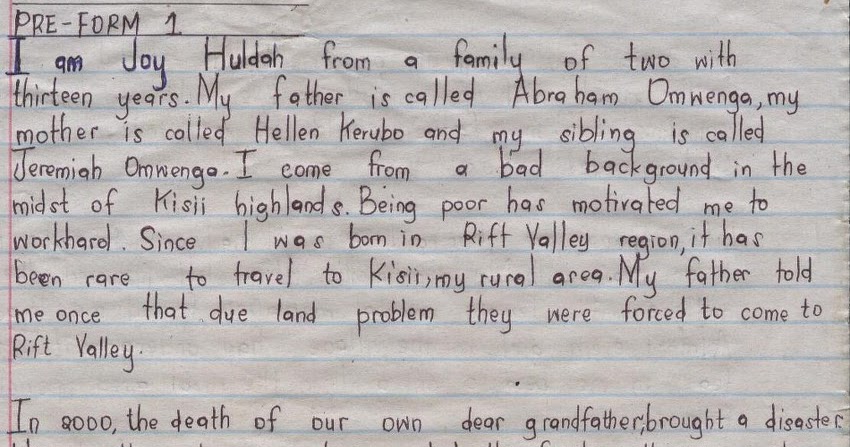 PRE-FORM 1
I am Joy Huldah from a family of two with
thirteen years. My father is called Abraham Omwenga, my
mother is called Hellen Kerubo and my sibling is called
Jeremiah Omwenga. I come from a bad background in the
midst of Kisii highlands. Being poor has motivated me to
workhard. Since I was born in Rift Valley region, it has
been rare to travel to Kisii, my rural area. My father told
me once that due land problem they were forced to come to
Rift Valley.
In 2000, the death of our own dear grandfather, brought a disaster